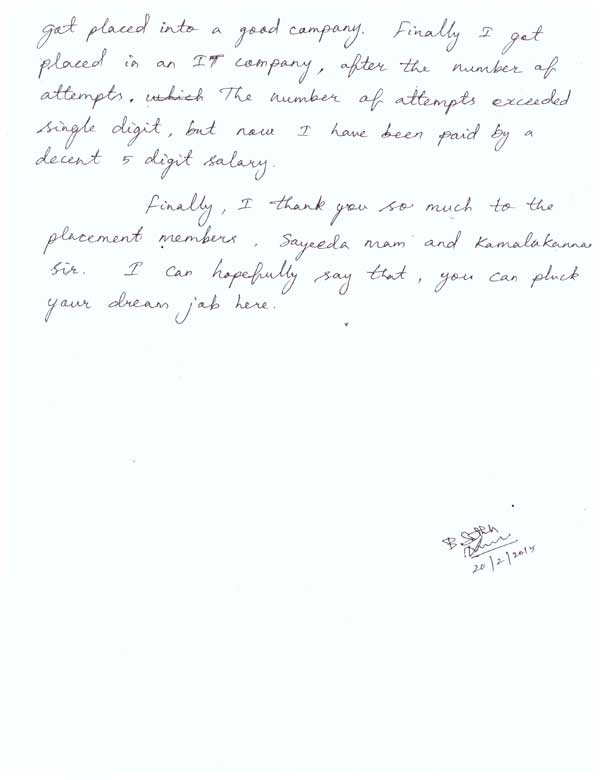 got placed into a good company. Finally I get
placed in an IT company, after the number of
attempts. which The number of attempts exceeded
single digit, but now I have been paid by a
decent 5 digit salary.
Finally, I thank you so much to the
placement members, Sayeeda mam and Kamalakanna
sir. I can hopefully say that, you can pluck
your dream job here.
B
20/2/2015